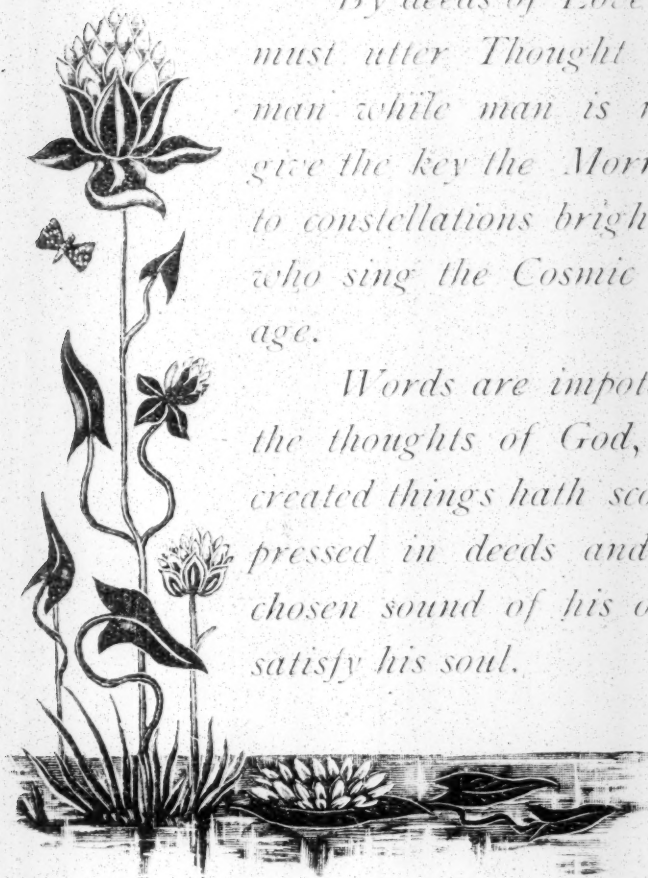 By deeds of Love
must utter Thought
man while man is
give the key the Morn
to constellations brigh
who sing the Cosmic
age.
Words are impot
the thoughts of God,
created things hath sc
pressed in deeds and
chosen sound of his o
satisfy his soul.